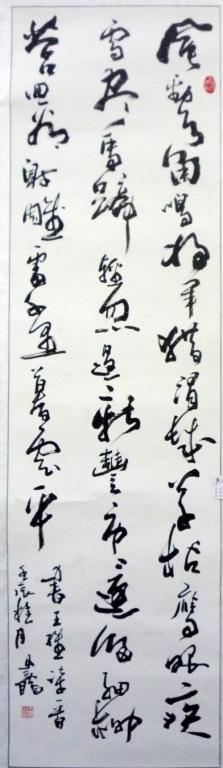 風勁角弓鳴將軍獵渭城草枯鷹眼疾
雪盡馬蹄輕忽過新豐市還歸細柳
營回看射雕處千里暮雲平
書王維詩一首
壬辰桂月